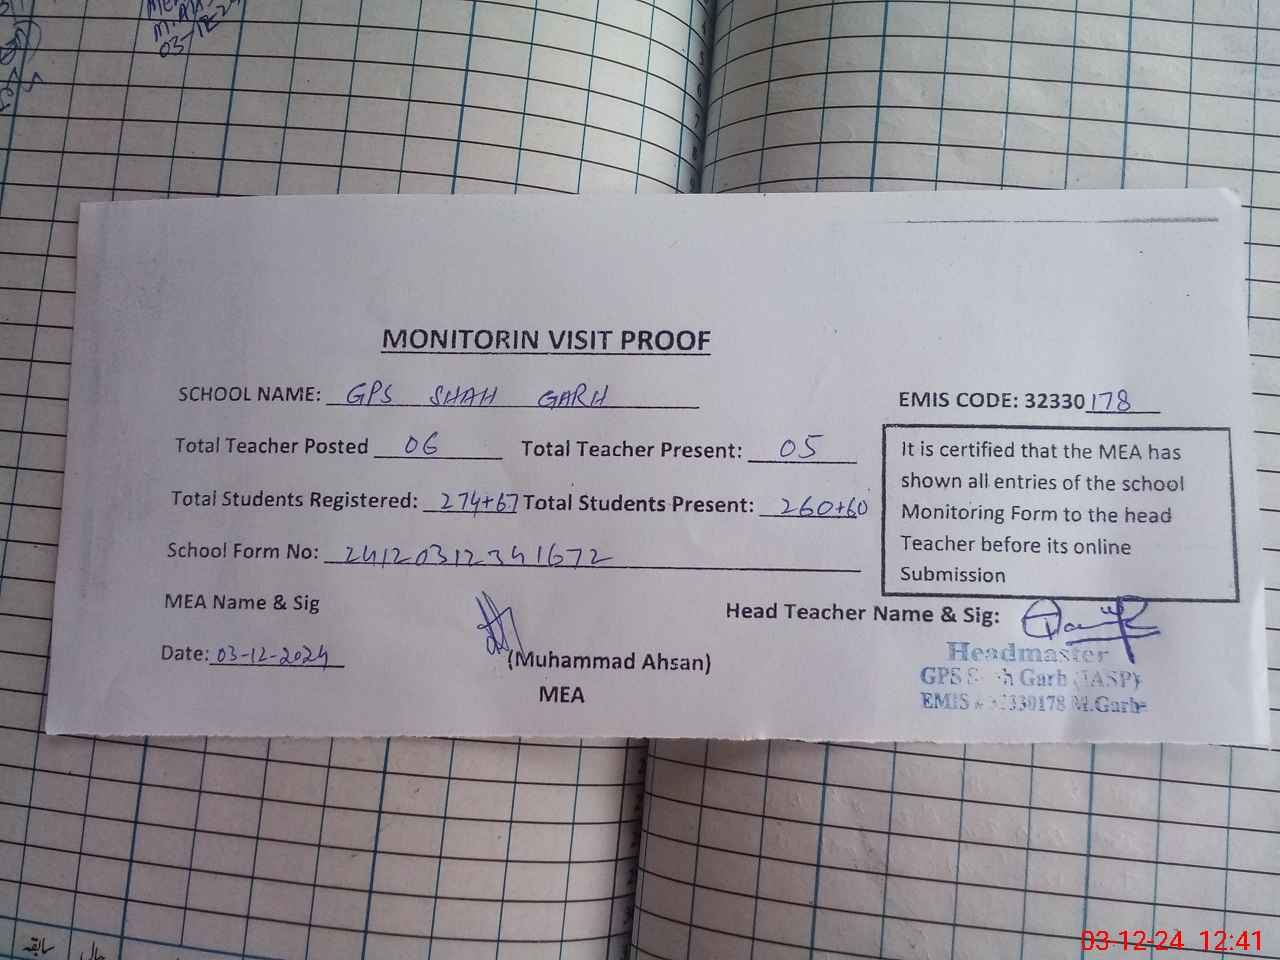 03-12-24
MONITORIN VISIT PROOF
SCHOOL NAME: GPS SHAH GARH
EMIS CODE: 32330178
Total Teacher Posted 06 Total Teacher Present: 05
Total Students Registered: 274+67 Total Students Present: 260+60
School Form No: 2412031234 1672
It is certified that the MEA has
shown all entries of the school
Monitoring Form to the head
Teacher before its online
Submission
MEA Name & Sig
Head Teacher Name & Sig:
Date: 03-12-2024
(Muhammad Ahsan)
MEA
Headmaster
GPS Garh (IASP)
EMIS 32330178 M.Garh
سابقہ حالی
03-12-24 12:41